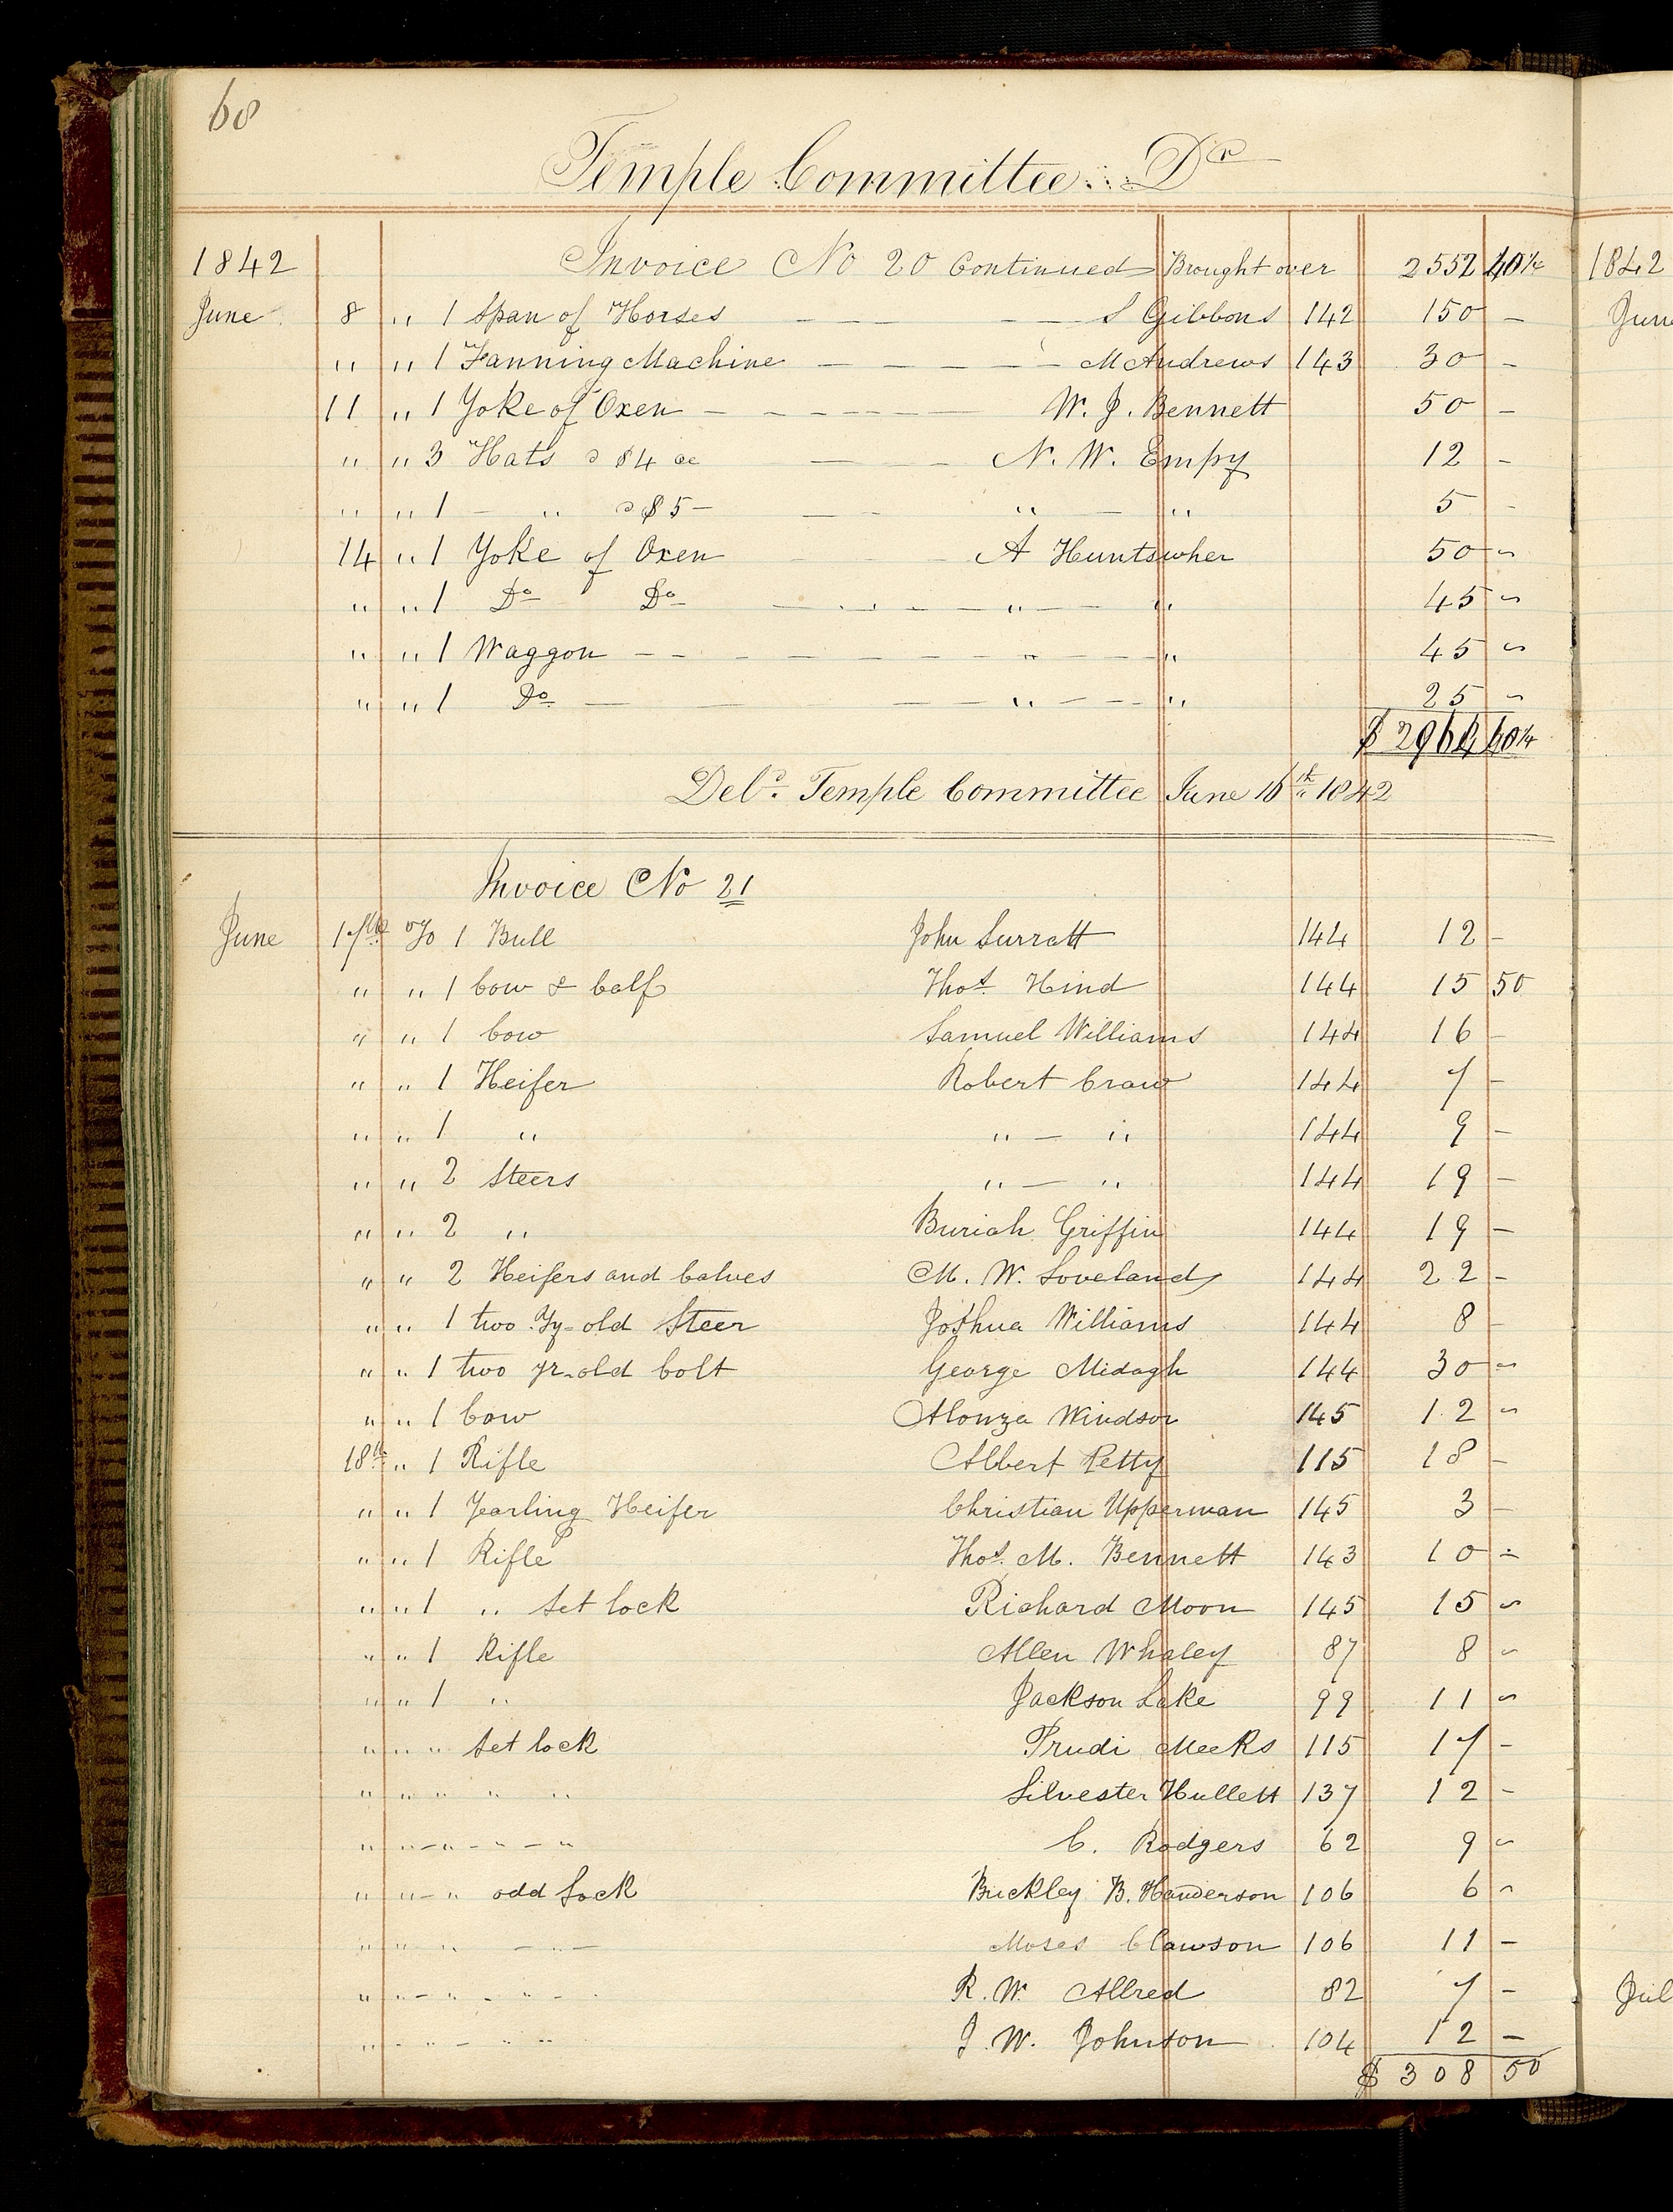 68
Temple Committee Dr
1842 Invoice No 20 Continued Brought over 2552 40¼
June 8 " 1 Span of Horses — — — S Gibbons 142 150 –
" " 1 Fanning Machine — — — — — M Andrews 143 30 –
11 " 1 Yoke of Oxen — — — — — W. J. Bennett 50 –
" " 3 Hats @ $4 — — N. W. Empy 12 –
" " 1 – " @ $5 – — — " — " 5 –
14 " 1 Yoke of Oxen — — — A Huntswher 50 –
" " 1 Do Do — — — — " — — " 45 –
" " 1 Waggon — — — — — — " — — " 45 –
" " 1 Do — — — — " — — — " 25 –
$ 2964 40¼
Deld. Temple Committee June 16th 1842
Invoice No 21
June 17th To 1 Bull John Surratt 144 12 –
" " 1 Cow & Calf Thos. Hind 144 15 50
" " 1 Cow Samuel Williams 144 16 –
" " 1 Heifer Robert Craw 144 7 –
" " 1 " " — " 144 9 –
" " 2 Steers " — " 144 19 –
" " 2 " Buriah Griffin 144 19 –
" " 2 Heifers and Calves M. W. Loveland 144 22 –
" " 1 two Yy-old Steer Joshua Williams 144 8 –
" " 1 two yr-old Colt George Midagh 144 30 –
" " 1 Cow Alonza Windsor 145 12 –
18th " 1 Rifle Albert Petty 115 18 –
" " 1 Yearling Heifer Christian Upperman 145 3 –
" " 1 Rifle Thos. M. Bennett 143 10 –
" " 1 " Set lock Richard Moon 145 15 –
" " 1 Rifle Allen Whaley 87 8 –
" " 1 " Jackson Lake 99 11 –
" " " Set lock Prudi Meeks 115 17 –
" " " " " Silvester Hullett 137 12 –
" " – " – " – " C. Rodgers 62 9 –
" " – " odd Lock Brickley B. Handerson 106 6 –
" " " — " — Moses Clawson 106 11 –
" " – " – " – R. W. Allred 82 7 –
" – " – " " J. W. Johnson 104 12 –
$ 308 50
1842
June